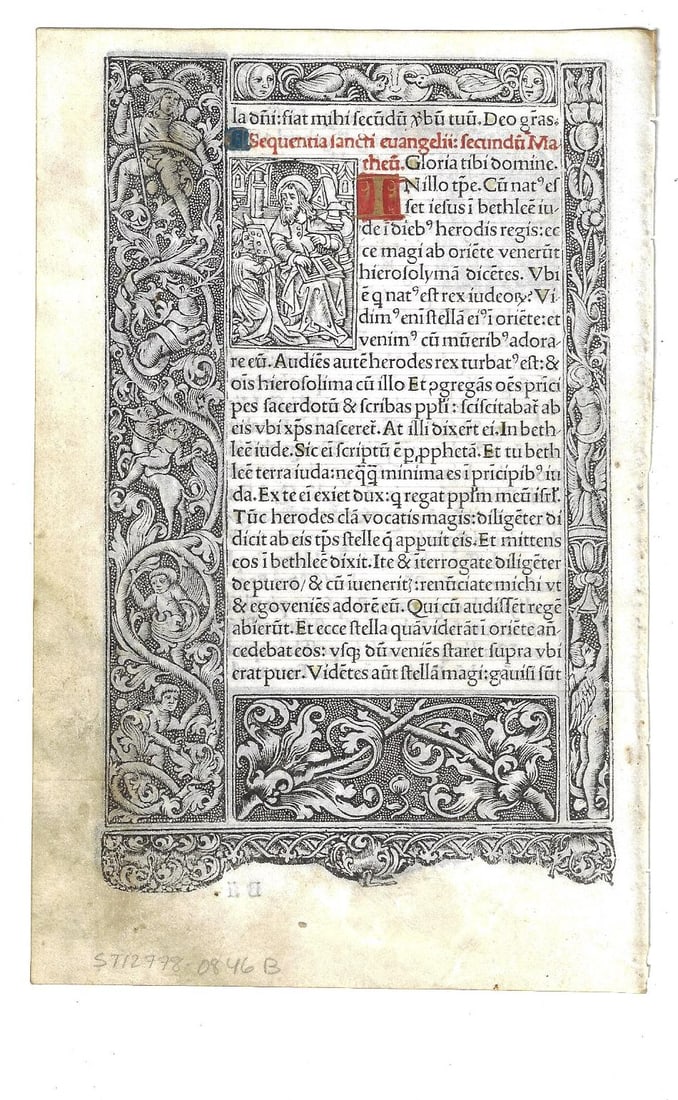 la dñi: fiat mihi secũdũ ỽbũ tuũ. Deo gr̃as.
Sequentia sancti euangelii: secundũ Ma
theũ. Gloria tibi domine.
IN illo tp̃e. Cũ natꝰ es
set iesus ĩ bethleẽ iu-
de ĩ diebꝰ herodis regis: ec
ce magi ab oriẽte venerũt
hierosolymã dicẽtes. Vbi
ẽ q natꝰ est rex iudeoꝝ? Vi
dimꝰ eni stellã eiꝰ ĩ oriẽte: et
venimꝰ cũ mũeribꝰ adora
re eũ. Audiẽs autẽ herodes rex turbatꝰ est: &
oĩs hierosolima cũ illo Et ꝓgregãs oẽs prĩci
pes sacerdotũ & scribas ppl̃i: sciscitabat̃ ab
eis vbi xp̃s nasceret̃. At illi dixer̃t ei. In beth-
leẽ iude. Sic ei scriptũ ẽ p, pphetã. Et tu beth
leẽ terra iuda: neq̃q̃ minima es ĩ prĩcipibꝰ iu
da. Ex te ei exiet dux: q regat ppl̃m meũ isrl̃.
Tũc herodes clã vocatis magis: diligẽter di
dicit ab eis tp̃s stelle q̃ appuit eis. Et mittens
eos ĩ bethleẽ dixit. Ite & ĩterrogate diligẽter
de puero/ & cũ iuenerit⁊: renũciate michi vt
& ego veniẽs adorẽ eũ. Qui cũ audissẽt regẽ
abierũt. Et ecce stella quã viderãt ĩ oriẽte an-
cedebat eos: vsq; dũ veniẽs staret supra vbi
erat puer. Vidẽtes aũt stellã magi: gauisi sũt
ST12778-0846 B